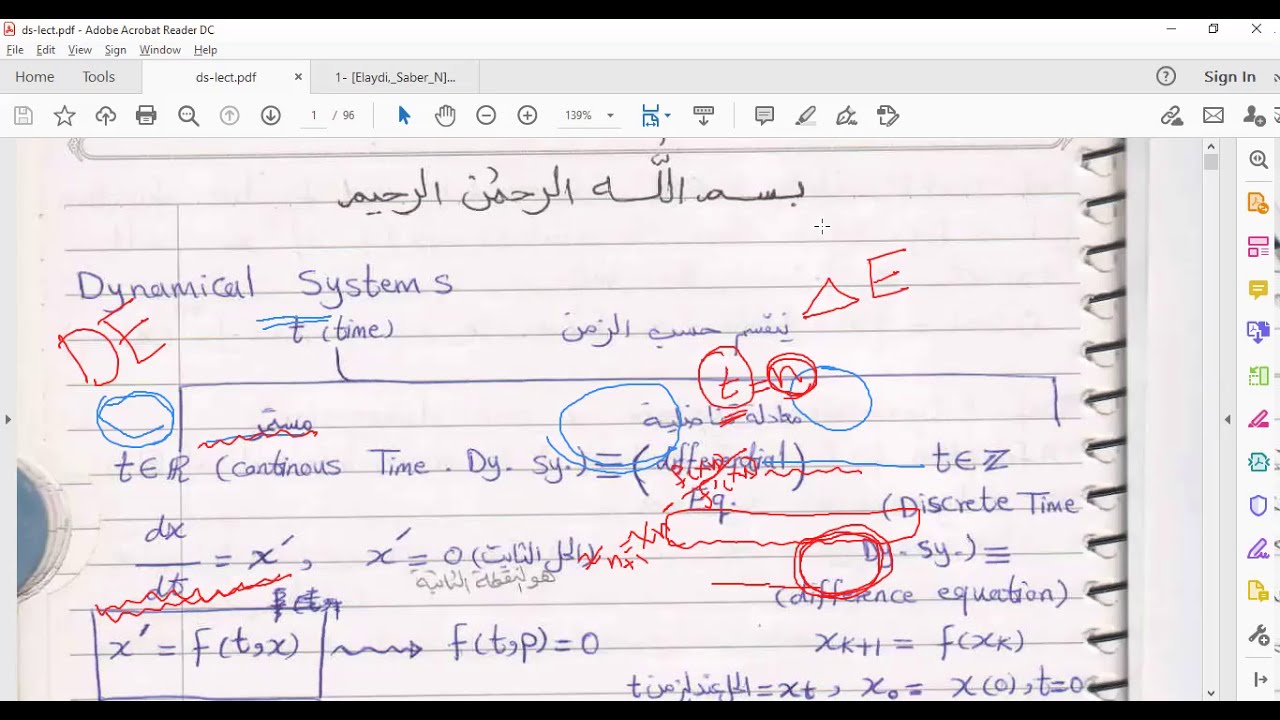 ds-lect.pdf - Adobe Acrobat Reader DC
File Edit View Sign Window Help
Home Tools ds-lect.pdf × 1- [Elaydi,_Saber_N]... Sign In
1 / 96 139%
بسم اللّه الرحمٰن الرحيم
Dynamical Systems
DE
ΔE
t (time) نيقسم حسب الزمن
t = n
مستمر معادلة تفاضلية
t∈ℝ (continous Time . Dy. Sy.) ≡ (differential) t∈ℤ
Eq. (Discrete Time
dx/dt = x′, x′ = 0 (الحل الثابت) Dy. Sy.) ≡
هو النقطة الثابتة
n+1
(difference equation)
x′ = f(t,x) ⟿ f(t,p) = 0 xK+1 = f(xK)
الحل عند الزمن t = xt , x0 = x(0), t=0